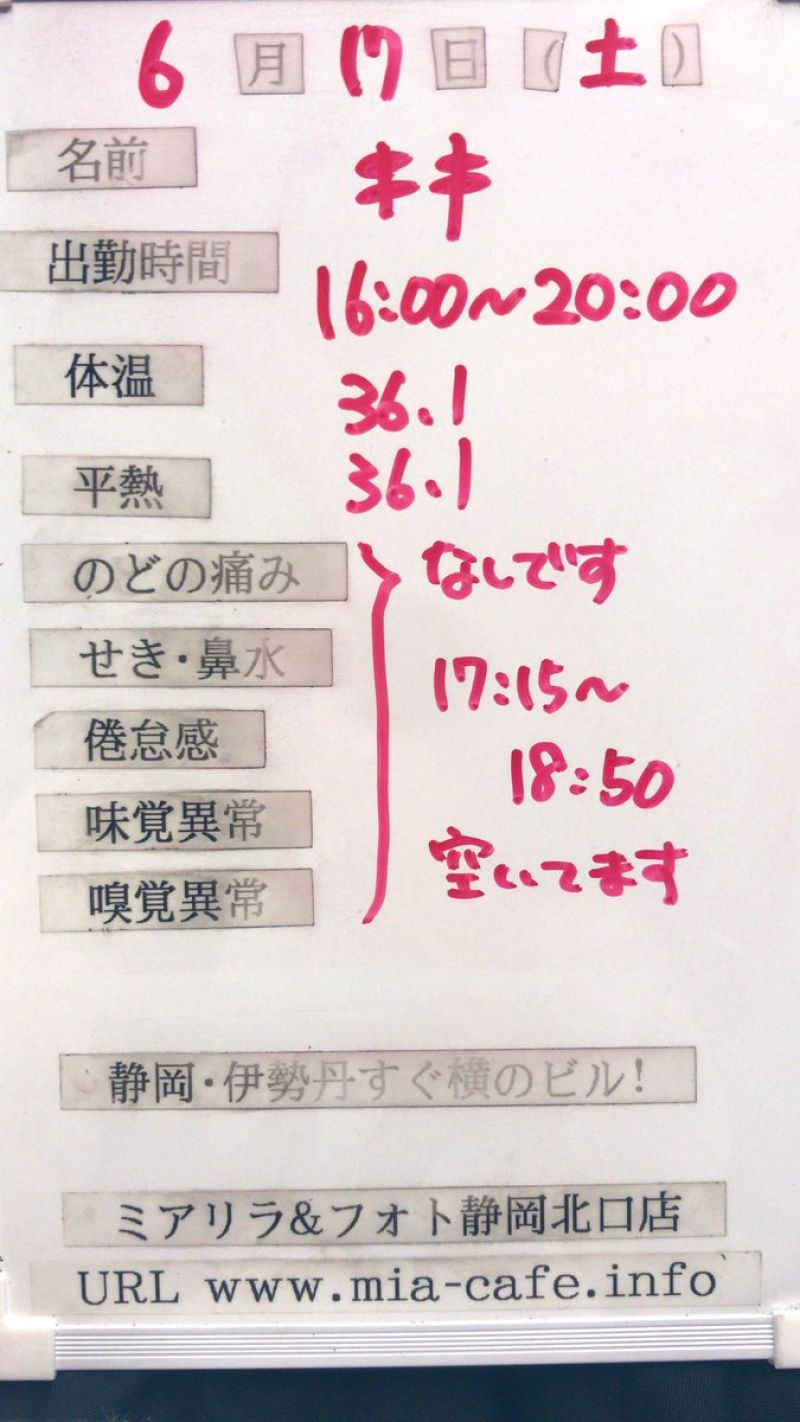 6月17日(土)
名前 キキ
出勤時間 16:00~20:00
体温 36.1
平熱 36.1
のどの痛み なしです
せき・鼻水 17:15~
倦怠感 18:50
味覚異常 空いてます
嗅覚異常
静岡・伊勢丹すぐ横のビル!
ミアリラ&フォト静岡北口店
URL www.mia-cafe.info